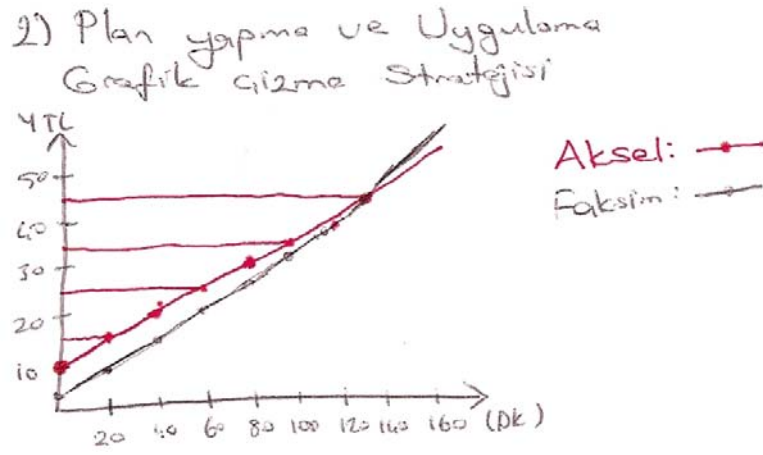 2) Plan yapma ve Uygulama
Grafik çizme Stratejisi
YTL
50
40
30
20
10
20 40 60 80 100 120 140 160 (DK)
Aksel:
Faksim: